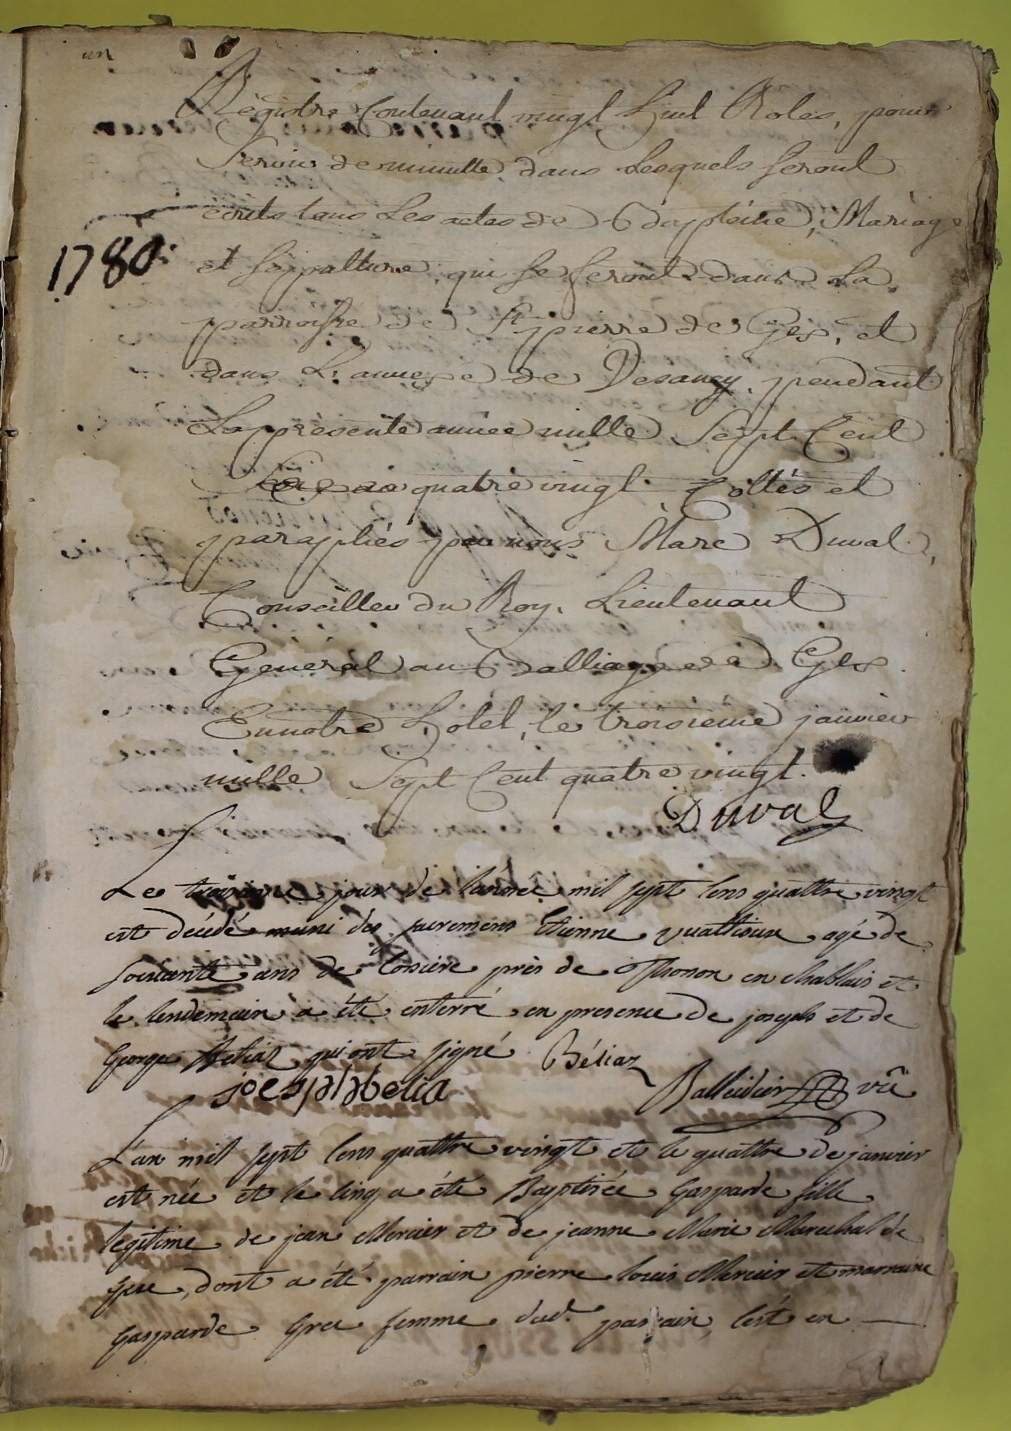 un
Registre Contenant vingt huit Roles, pour
Servir de minutte dans Lesquels seront
ecrits tous Les actes de Baptême, Mariage
1780.
et seppulture qui se feront dans La
parroisse de St pierre de Gex, et
dans L'annexe de Vesancy, pendant
La presente année mille Sept Cent
quatre vingt. Cottés et
paraphés par nous Marc Duval,
Conseiller du Roy, Lieutenant
General au Balliage de Gex.
En notre hotel, le troisieme janvier
mille Sept Cent quatre vingt.
Duval
Le troisieme jour de l'année mil sept cens quattre vingt
est décédé muni des sacremens Etienne agé de
soixante ans de près de Thonon en chablais et
le lendemain a été enterré en presence de joseph et de
George Béliaz qui ont signé. Béliaz
joesph belia Balleidier vic
L'an mil sept cens quattre vingt et le quattre de janvier
est née et le cinq a été Baptisée Gasparde fille
legitime de jean Mercier et de jeanne Marie Marechal de
Gex, dont a été parrain pierre louis Mercier et marraine
Gasparde femme dud. parrain, l'est en